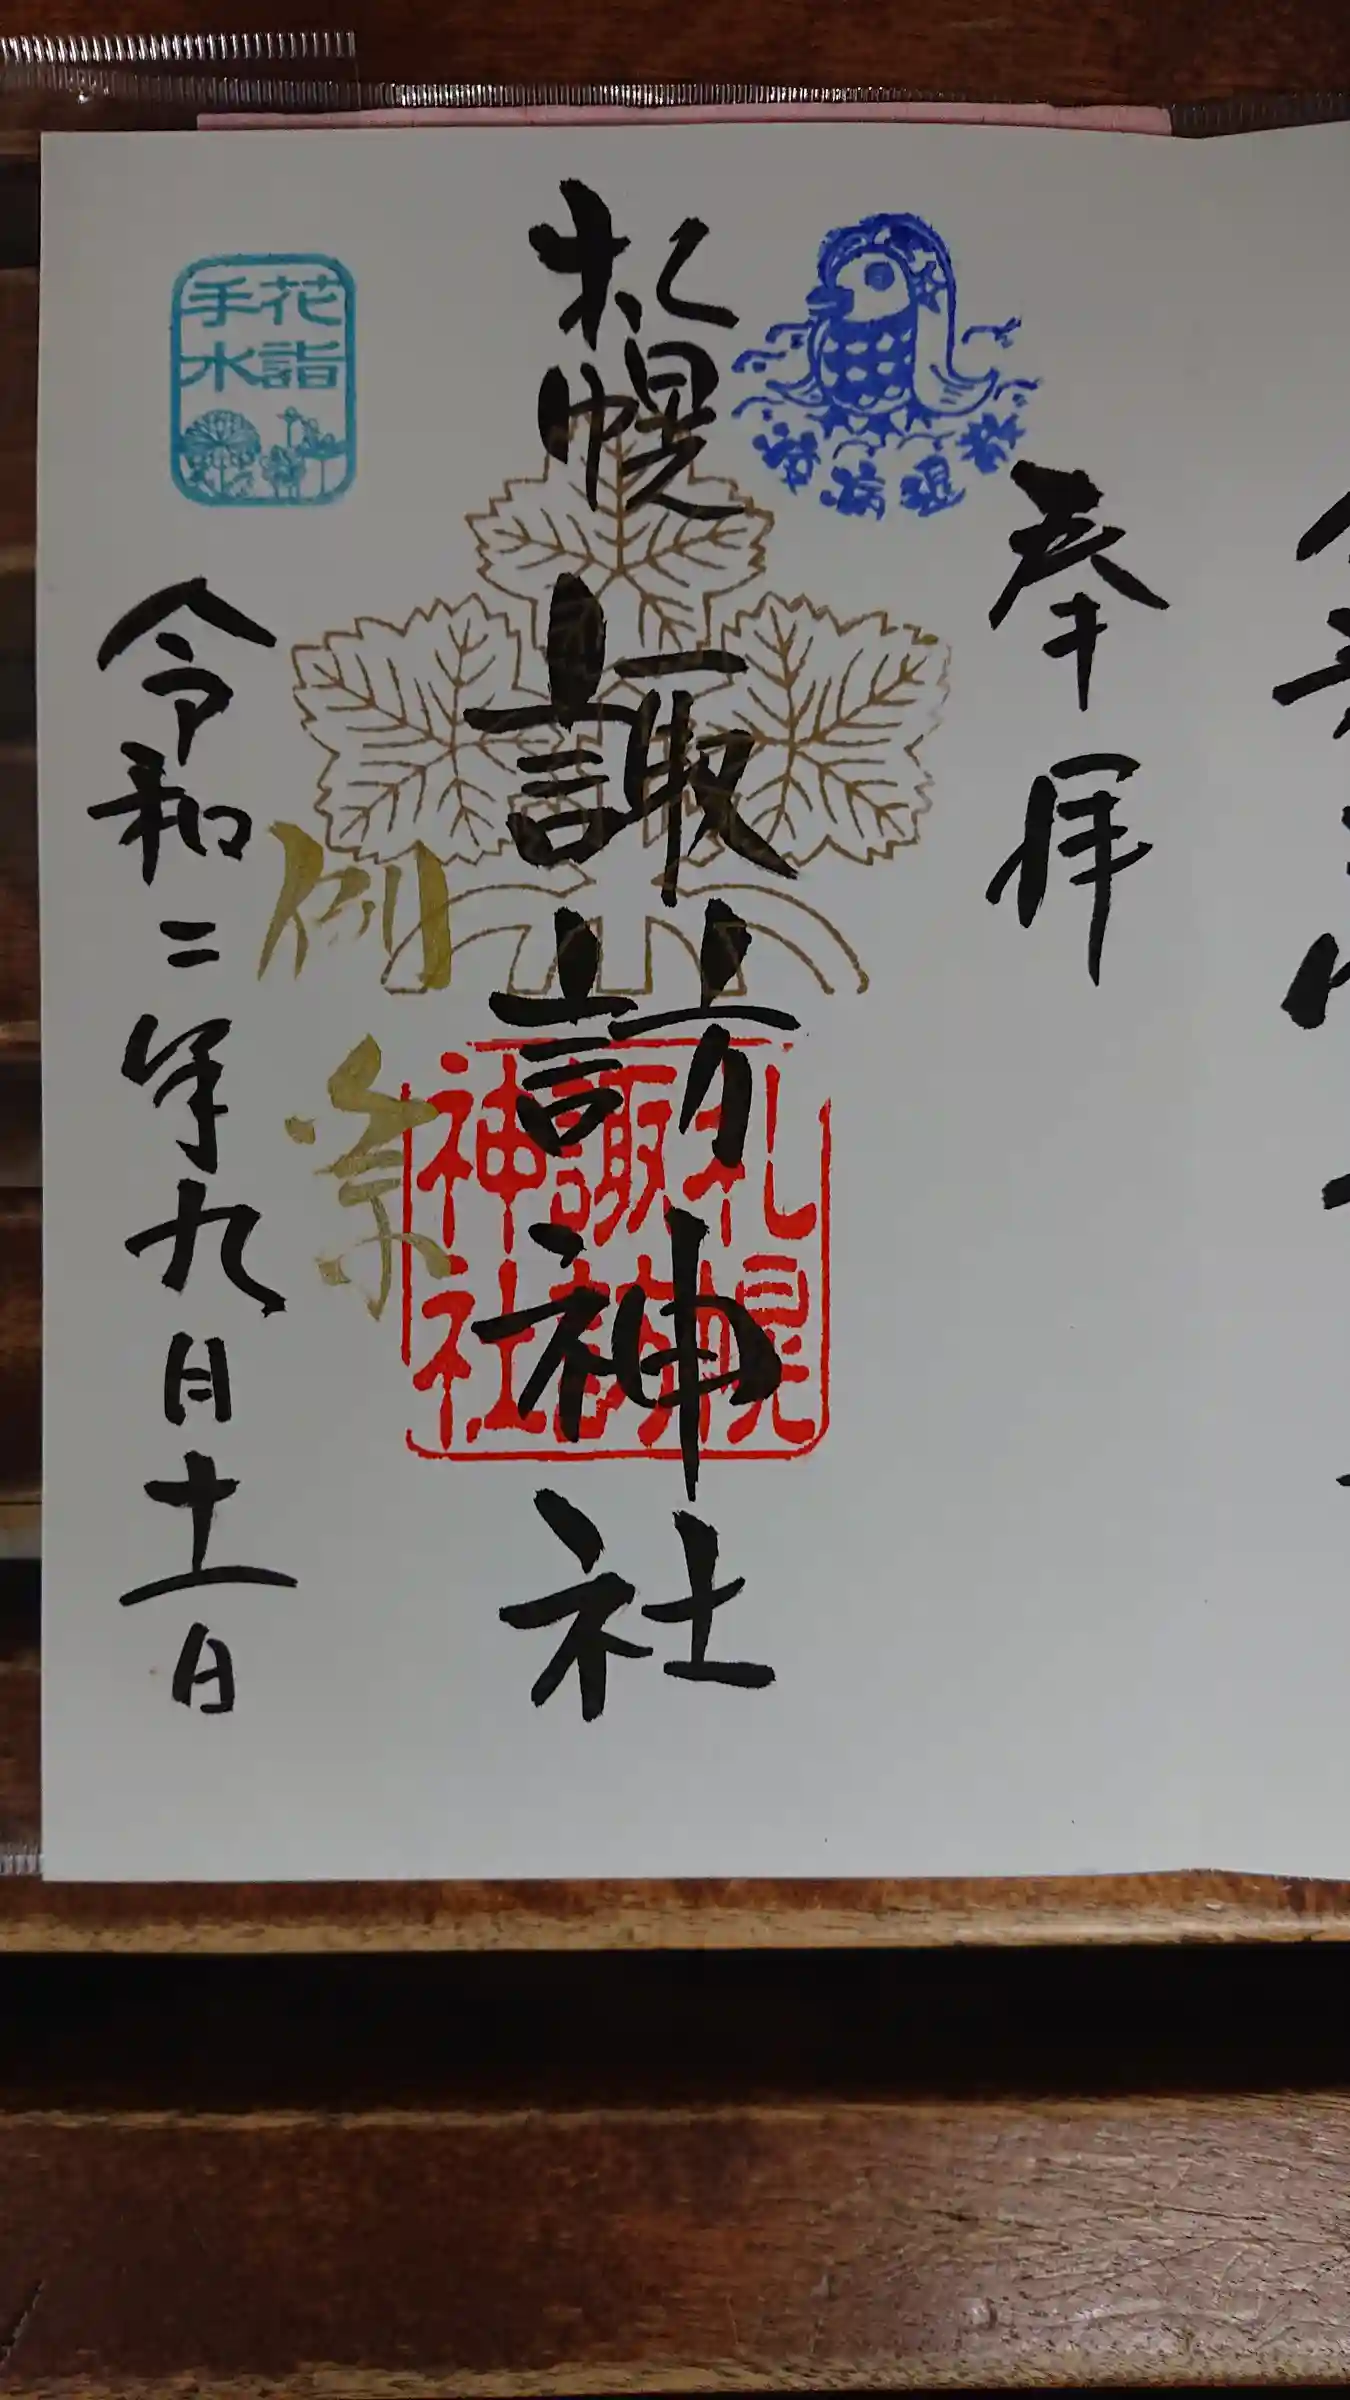 奉拝
疫病退散
札幌
諏訪神社
札幌
諏訪
神社
例祭
花詣
手水
令和二年九月十二日